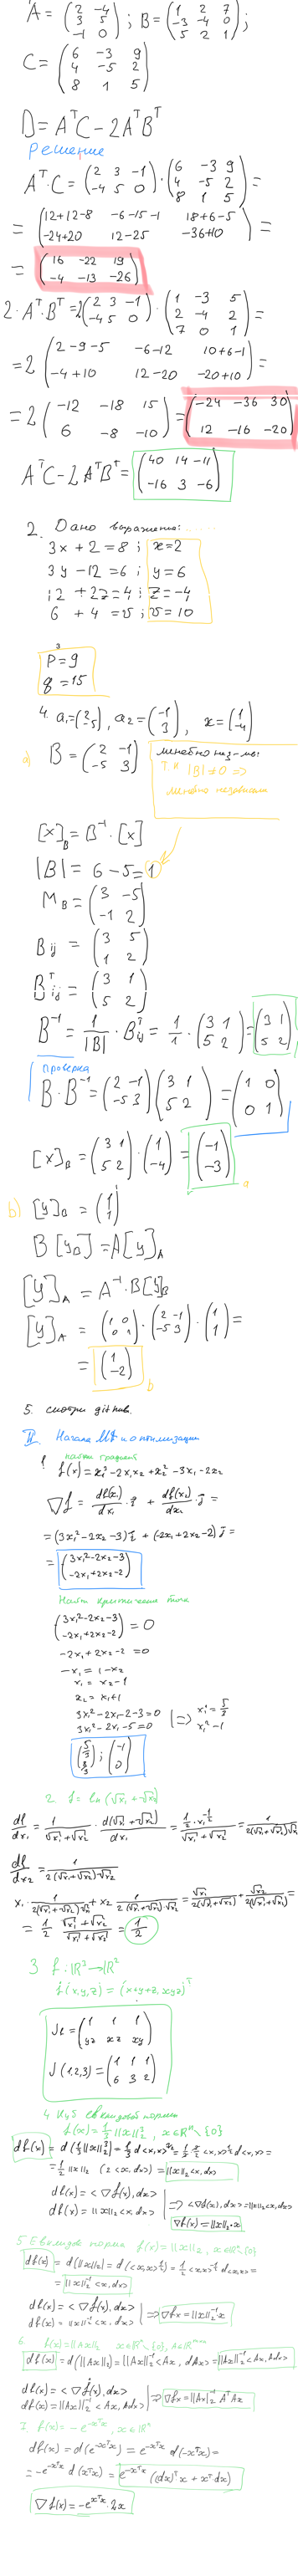 A = (2 -4; 3 5; -1 0); B = (1 2 7; -3 -4 0; 5 2 1);
C = (6 -3 9; 4 -5 2; 8 1 5)
D = AᵀC - 2AᵀBᵀ
Решение
Aᵀ·C = (2 3 -1; -4 5 0) · (6 -3 9; 4 -5 2; 8 1 5) =
= (12+12-8 -6-15-1 18+6-5; -24+20 12-25 -36+10) =
= (16 -22 19; -4 -13 -26)
2·Aᵀ·Bᵀ = 2(2 3 -1; -4 5 0) · (1 -3 5; 2 -4 2; 7 0 1) =
= 2 (2-9-5 -6-12 10+6-1; -4+10 12-20 -20+10) =
= 2 (-12 -18 15; 6 -8 -10) = (-24 -36 30; 12 -16 -20)
AᵀC - 2AᵀBᵀ = (40 14 -11; -16 3 -6)
2. Дано выражения:
3x + 2 = 8; x = 2
3y - 12 = 6; y = 6
12 + 2z = 4; z = -4
6 + 4 = v; v = 10
3
P = 9
q = 15
4. a₁ = (2; -5), a₂ = (-1; 3), x = (1; -4)
a) B = (2 -1; -5 3)
линейно нез-мы
т.к |B| ≠ 0 =>
линейно независим
[x]_B = B⁻¹·[x]
|B| = 6 - 5 = 1
M_B = (3 -5; -1 2)
B_ij = (3 5; 1 2)
Bᵀ_ij = (3 1; 5 2)
B⁻¹ = 1/|B| · Bᵀ_ij = 1/1 · (3 1; 5 2) = (3 1; 5 2)
проверка
B·B⁻¹ = (2 -1; -5 3)(3 1; 5 2) = (1 0; 0 1)
[x]_B = (3 1; 5 2) · (1; -4) = (-1; -3)
a
b) [y]_B = (1; 1)
B[y_B] = A[y]_A
[y]_A = A⁻¹·B[y]_B
[y]_A = (1 0; 0 1) · (2 -1; -5 3) · (1; 1) =
= (1; -2)
b
5. смотри github.
II. Начала МА и оптимизации
1. найти градиент
f(x) = x₁³ - 2x₁x₂ + x₂² - 3x₁ - 2x₂
∇f = df(x₁)/dx₁ · i + df(x₂)/dx₂ · j =
= (3x₁² - 2x₂ - 3) i + (-2x₁ + 2x₂ - 2) j =
= (3x₁² - 2x₂ - 3; -2x₁ + 2x₂ - 2)
Найти критические точки
(3x₁² - 2x₂ - 3; -2x₁ + 2x₂ - 2) = 0
-2x₁ + 2x₂ - 2 = 0
-x₁ = 1 - x₂
x₁ = x₂ - 1
x₂ = x₁ + 1
3x₁² - 2x₁ - 2 - 3 = 0
3x₁² - 2x₁ - 5 = 0 | => x₁¹ = 5/3
x₁² = -1
(5/3; 8/3); (-1; 0)
2. f = ln(√x₁ + √x₂)
df/dx₁ = 1/(√x₁+√x₂) · d(√x₁+√x₂)/dx₁ = ½·x₁^(-½)/(√x₁+√x₂) = 1/(2(√x₁+√x₂)√x₁)
df/dx₂ = 1/(2(√x₁+√x₂)·√x₂)
x₁ · 1/(2(√x₁+√x₂)·√x₁) + x₂ 1/(2(√x₁+√x₂)·√x₂) = √x₁/(2(√x₁+√x₂)) + √x₂/(2(√x₁+√x₂)) =
= 1/2 · (√x₁+√x₂)/(√x₁+√x₂) = 1/2
3 f: ℝ³→ℝ²
f(x,y,z) = (x+y+z, xyz)ᵀ
J_f = (1 1 1; yz xz xy)
J(1,2,3) = (1 1 1; 6 3 2)
f(x) = 1/3 ||x||₂³, x∈ℝⁿ\{0}
df(x) = d(1/3||x||₂³) = 1/3 d<x,x>^(3/2) = 1/3 · 3/2 <x,x>^(1/2) d<x,x> =
= 1/2 ||x||₂ (2<x,dx>) = ||x||₂<x,dx>
df(x) = <∇f(x),dx>
df(x) = ||x||₂<x,dx> | => <∇f(x),dx> = ||x||₂<x,dx>
∇f(x) = ||x||₂·x
5 Евклидова норма f(x) = ||x||₂, x∈ℝⁿ\{0}
df(x) = d(||x||₂) = d(<x,x>^(1/2)) = 1/2 <x,x>^(-1/2) d<x,x> =
= ||x||₂⁻¹<x,dx>
df(x) = <∇f(x),dx>
df(x) = ||x||₂⁻¹<x,dx> | => ∇f(x) = ||x||₂⁻¹x
6. f(x) = ||Ax||₂
df(x) = d(||Ax||₂) = ||Ax||₂⁻¹<Ax, dAx> = ||Ax||₂⁻¹<Ax, Adx>
df(x) = <∇f(x),dx>
df(x) = ||Ax||₂⁻¹<Ax, Adx> | => ∇f(x) = ||Ax||₂⁻¹AᵀAx
7. f(x) = -e^(-xᵀx), x∈ℝⁿ
df(x) = d(e^(-xᵀx)) = e^(-xᵀx) d(-xᵀx) =
= -e^(-xᵀx) d(xᵀx) = e^(-xᵀx)((dx)ᵀx + xᵀdx)
∇f(x) = -e^(-xᵀx)·2x